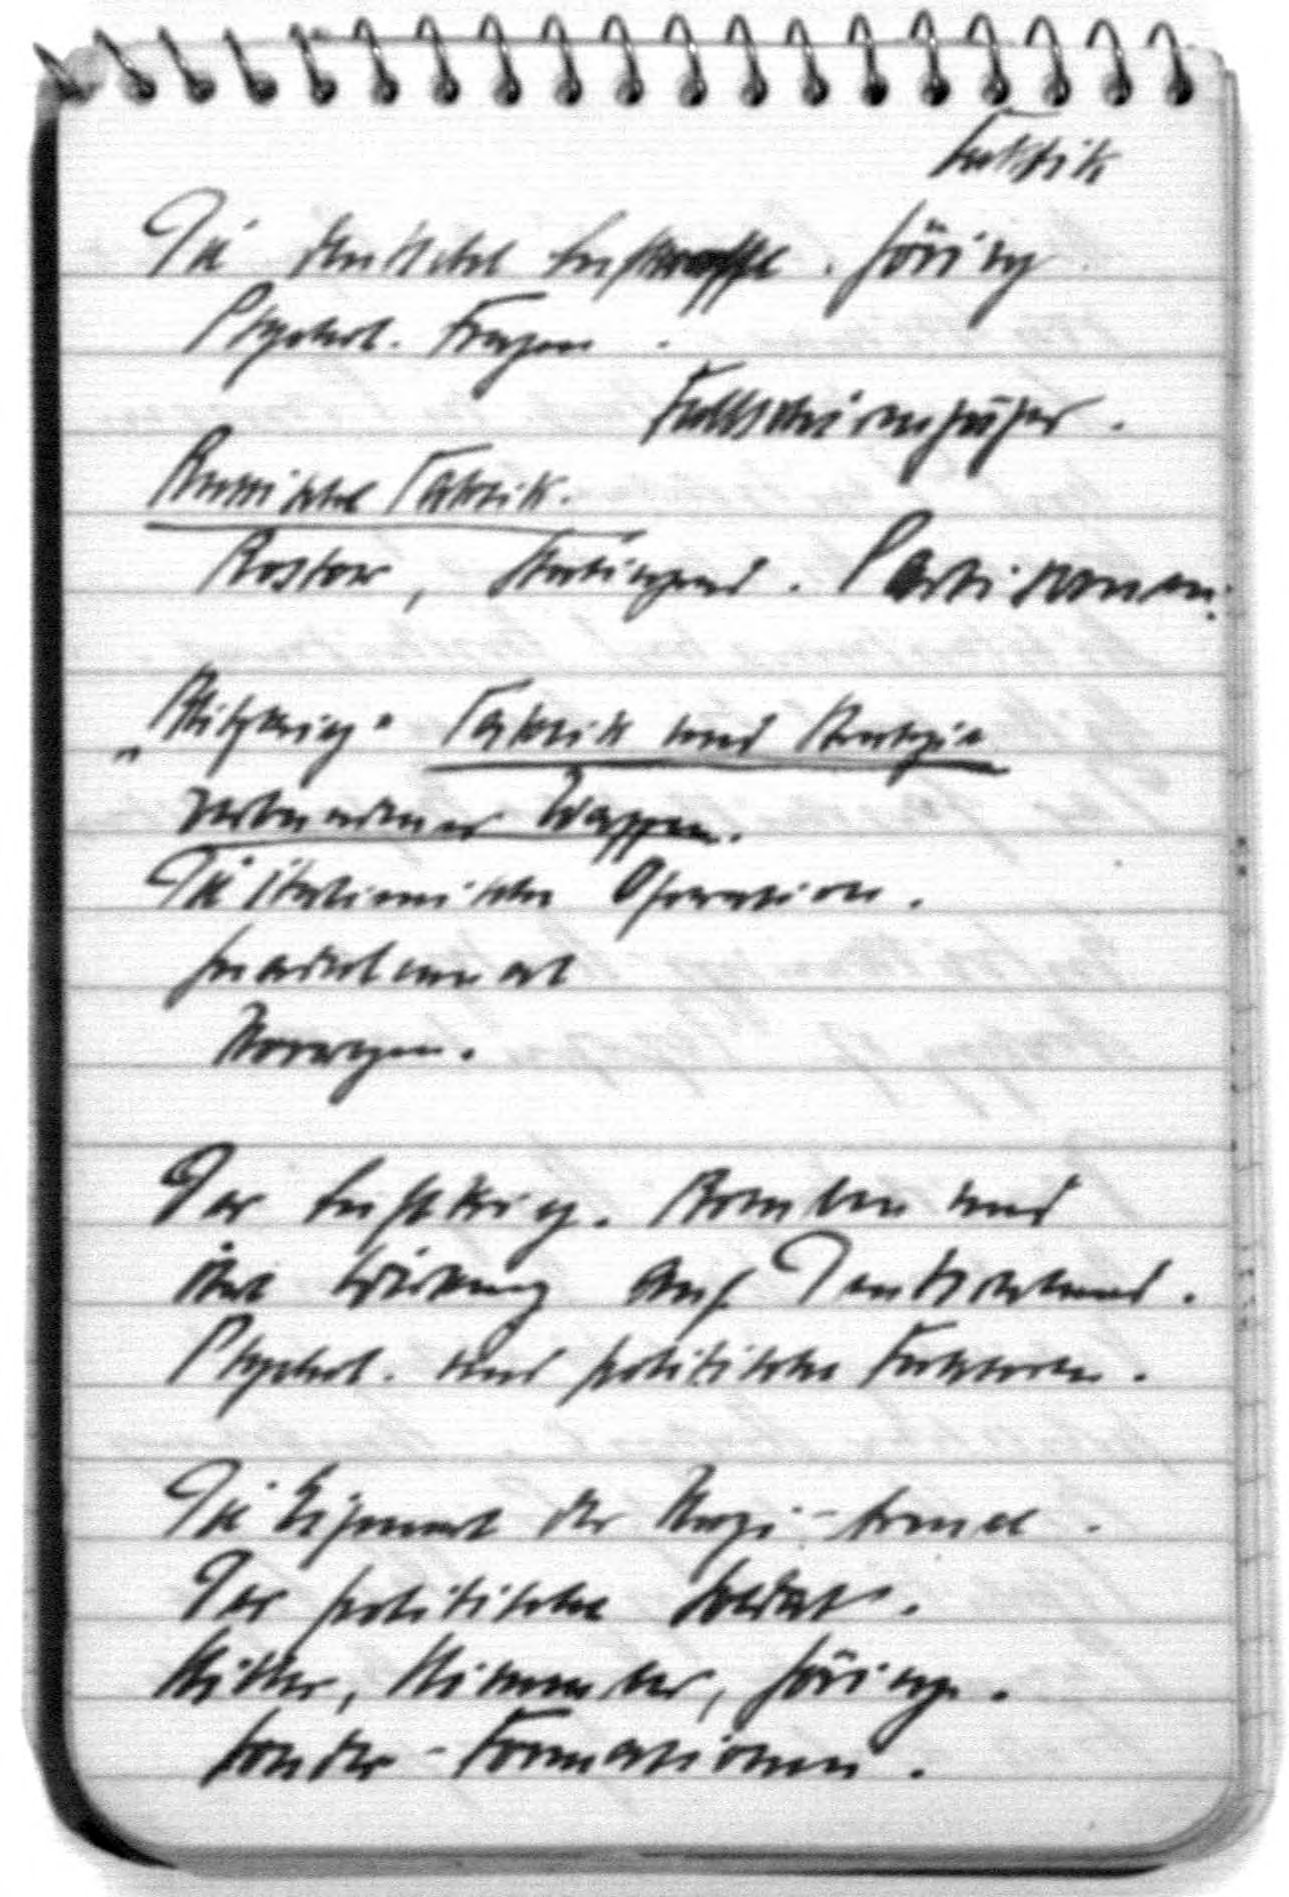 Taktik
Die deutsche Luftwaffe. Göring
Psychol. Fragen.
Fallschirmjäger.
Russische Taktik.
Rostow, Stalingrad. Partisanen.
„Blitzkrieg" Taktik und Strategie
verbundener Waffen.
Die italienische Operation.
Guadalcanal
Norwegen.
Der Luftkrieg. Bomben und
ihre Wirkung auf Deutschland.
Psychol. und politische Faktoren.
Die Eigenart der Nazi-Armee.
Der politische Soldat.
Hitler, Himmler, Göring.
Sonder-Formationen.